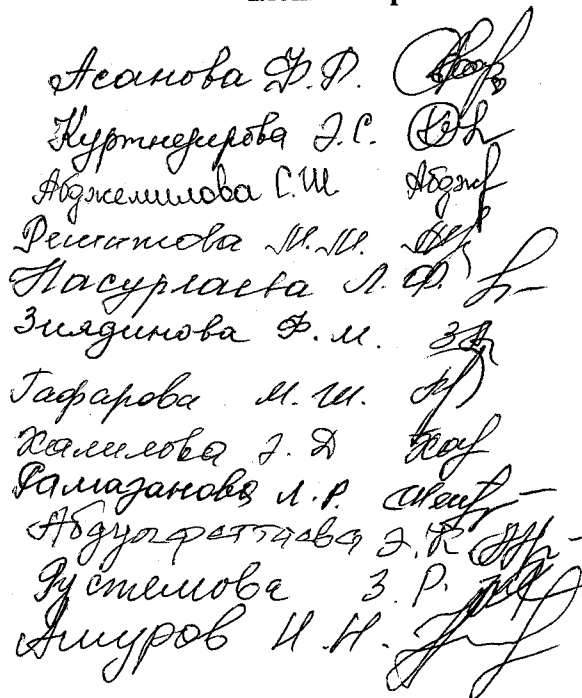 Асанова Ф.Р.
Куртнезирова Э.С.
Абджемилова С.Ш
Решитова М.М.
Насурлаева Л.Ф.
Зиядинова Ф.М.
Гафарова М.Ш.
Халилова З.Д
Рамазанова Л.Р.
Абдулфеттаева Э.К
Рустемова З.Р.
Ашуров И.Н.